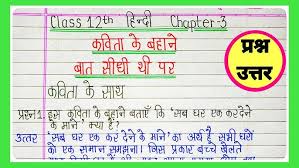 Class 12th हिन्दी Chapter-3
कविता के बहाने
बात सीधी थी पर
प्रश्न
उत्तर
कविता के साथ
प्रश्न1. इस कविता के बहाने बताएँ कि 'सब घर एक कर देने
के माने' क्या है?
उत्तर 'सब घर एक कर देने के माने' का अर्थ है सभी घरों
को एक समान समझना। जिस प्रकार बच्चे खेलते